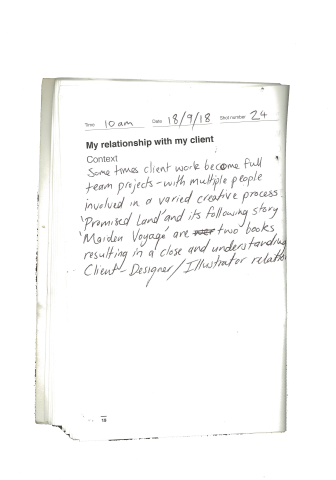 Time 10am Date 18/9/18 Shot number 24
My relationship with my client
Context
Some times client work become full
team projects - with multiple people
involved in a varied creative process.
'Promised Land' and its following story
'Maiden Voyage' are two books
resulting in a close and understanding
Client - Designer / Illustrator
18